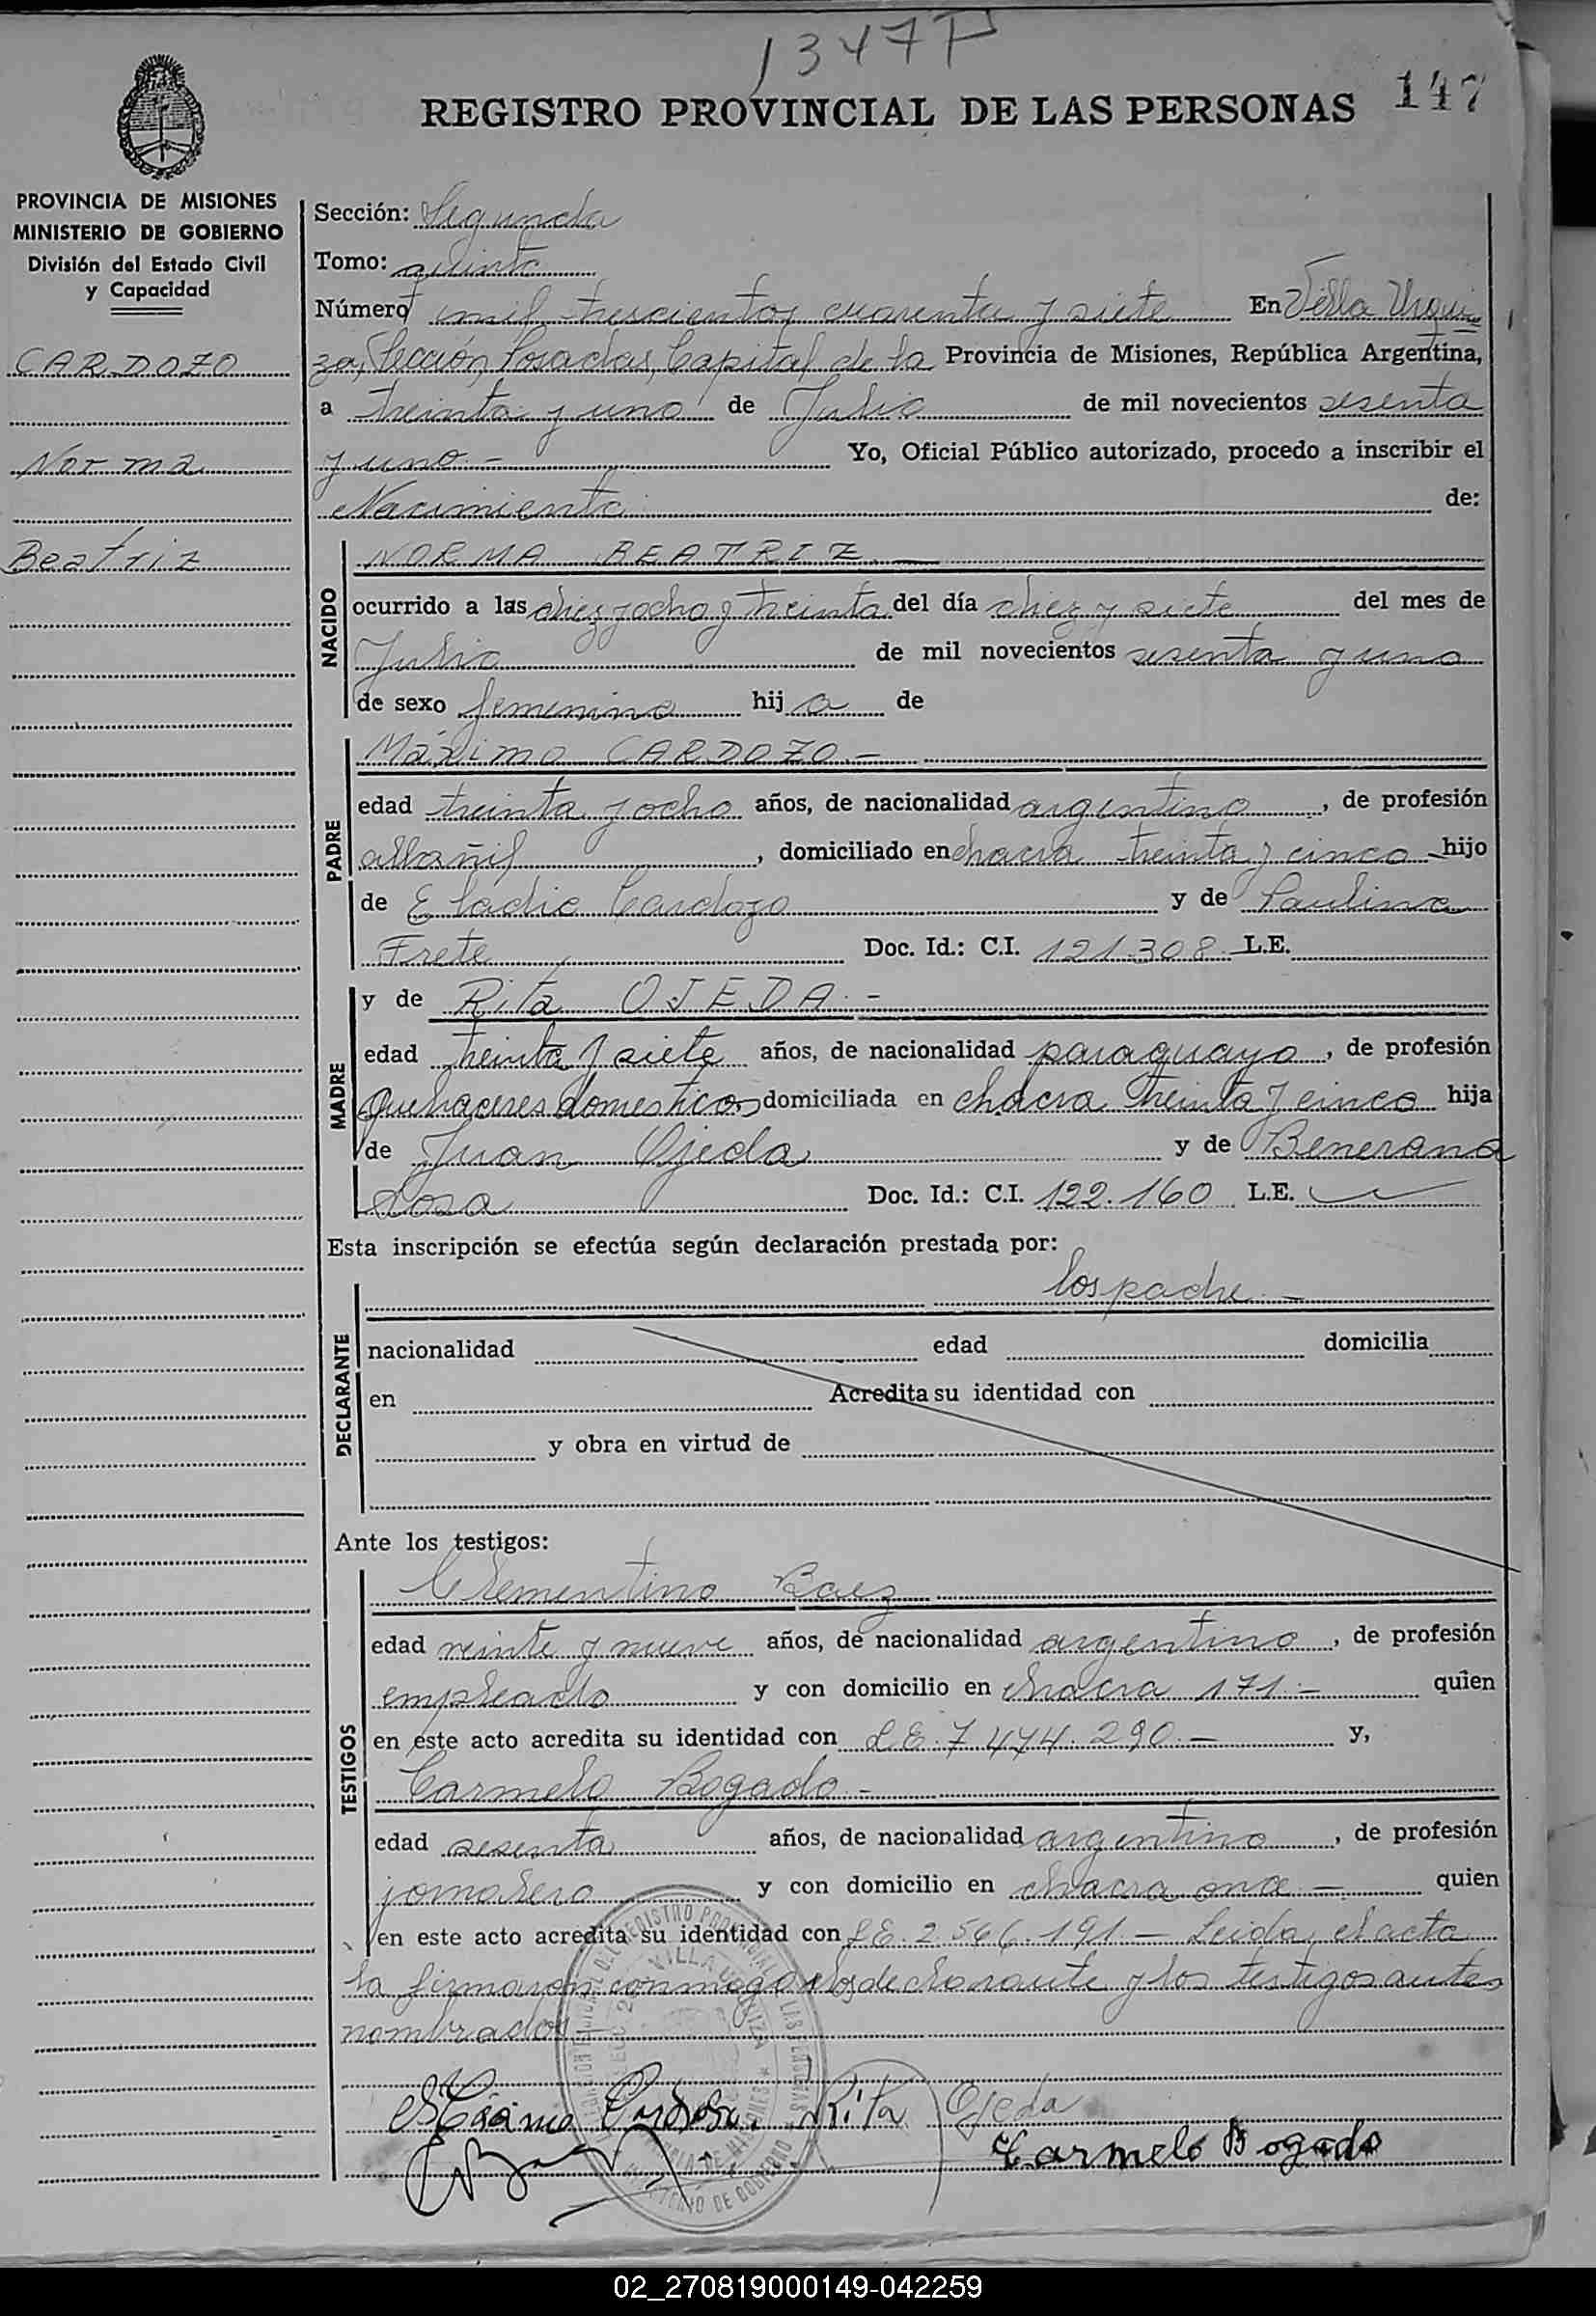 1347P
147
REGISTRO PROVINCIAL DE LAS PERSONAS
PROVINCIA DE MISIONES
MINISTERIO DE GOBIERNO
División del Estado Civil
y Capacidad
CARDOZO
Norma
Beatriz
Sección: Segunda
Tomo: quinto
Número mil trescientos cuarenta y siete En Villa Urqui
za, Sección Posadas, Capital de la Provincia de Misiones, República Argentina,
a treinta y uno de Julio de mil novecientos sesenta
y uno.- Yo, Oficial Público autorizado, procedo a inscribir el
Nacimiento de:
NACIDO
NORMA BEATRIZ.—
ocurrido a las diez y ocho y treinta del día diez y siete del mes de
Julio de mil novecientos sesenta y uno
de sexo femenino hij a de
PADRE
Máximo CARDOZO.-
edad treinta y ocho años, de nacionalidad argentino, de profesión
albañil, domiciliado en chacra treinta y cinco hijo
de Eladio Cardozo y de Paulina
Frete Doc. Id.: C.I. 121.308 L.E.
MADRE
y de Rita OJEDA.-
edad treinta y siete años, de nacionalidad paraguaya, de profesión
quehaceres domesticos domiciliada en chacra treinta y cinco hija
de Juan Ojeda y de Benerana
Sosa Doc. Id.: C.I. 122.160 L.E.
Esta inscripción se efectúa según declaración prestada por:
DECLARANTE
los padre.-
nacionalidad edad domicilia
en Acredita su identidad con
y obra en virtud de
Ante los testigos:
TESTIGOS
Clementino Baez
edad veinte y nueve años, de nacionalidad argentino, de profesión
empleado y con domicilio en chacra 171.- quien
en este acto acredita su identidad con L.E. 7.474.290.- y,
Carmelo Bogado.-
edad sesenta años, de nacionalidad argentino, de profesión
jornalero y con domicilio en chacra once.- quien
en este acto acredita su identidad con L.E. 2.566.191.- Leida el acta
la firmaron conmigo los declarante y los testigos antes
nombrados
VILLA URQUIZA
Máximo Cardozo. Rita Ojeda
Carmelo Bogado
02_270819000149-042259